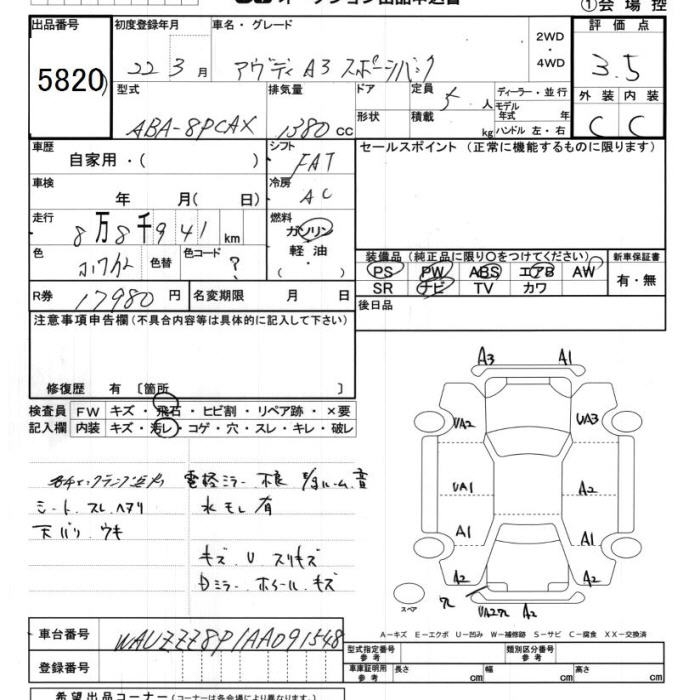 オークション出品申込書
①会場控
出品番号 初度登録年月 車名・グレード 2WD・4WD 評価点
5820 22年3月 アウディ A3 スポーツバック 3.5
型式 排気量 ドア 定員 5人 ディーラー・並行 外装 内装
ABA-8PCAX 1380cc 形状 積載 kg モデル年式 年 ハンドル 左・右 C C
車歴 自家用・( ) シフト FAT セールスポイント (正常に機能するものに限ります)
車検 年 月( 日) 冷房 AC
走行 8万8千941km 燃料 ガソリン・軽油・( )
色 色替 色コード ?
装備品(純正品に限り〇をつけてください) 新車保証書
PS PW ABS エアB AW 有・無
SR ナビ TV カワ
R券 17980円 名変期限 月 日 後日品
注意事項申告欄(不具合内容等は具体的に記入して下さい)
修復歴 有 〔箇所 〕
検査員 FW キズ・飛石・ヒビ割・リペア跡・×要
記入欄 内装 キズ・汚レ・コゲ・穴・スレ・キレ・破レ
電格ミラー 不良
シート スレ ヘタリ 水モレ 有
天バリ ウキ
キズ U スリキズ
Dミラー ホイール キズ
A3 A1
UA2 UA3
UA1 A2
A1 A1
A2 A2
スペア UA2 A2
A-キズ E-エクボ U-凹み W-補修跡 S-サビ C-腐食 XX-交換済
車台番号 WAUZZZ8P1AA091548
型式指定番号 参考 類別区分番号 参考
登録番号 車庫証明用 参考 長さ cm 幅 cm 高さ cm
希望出品コーナー(コーナーは各会場により異なります。)